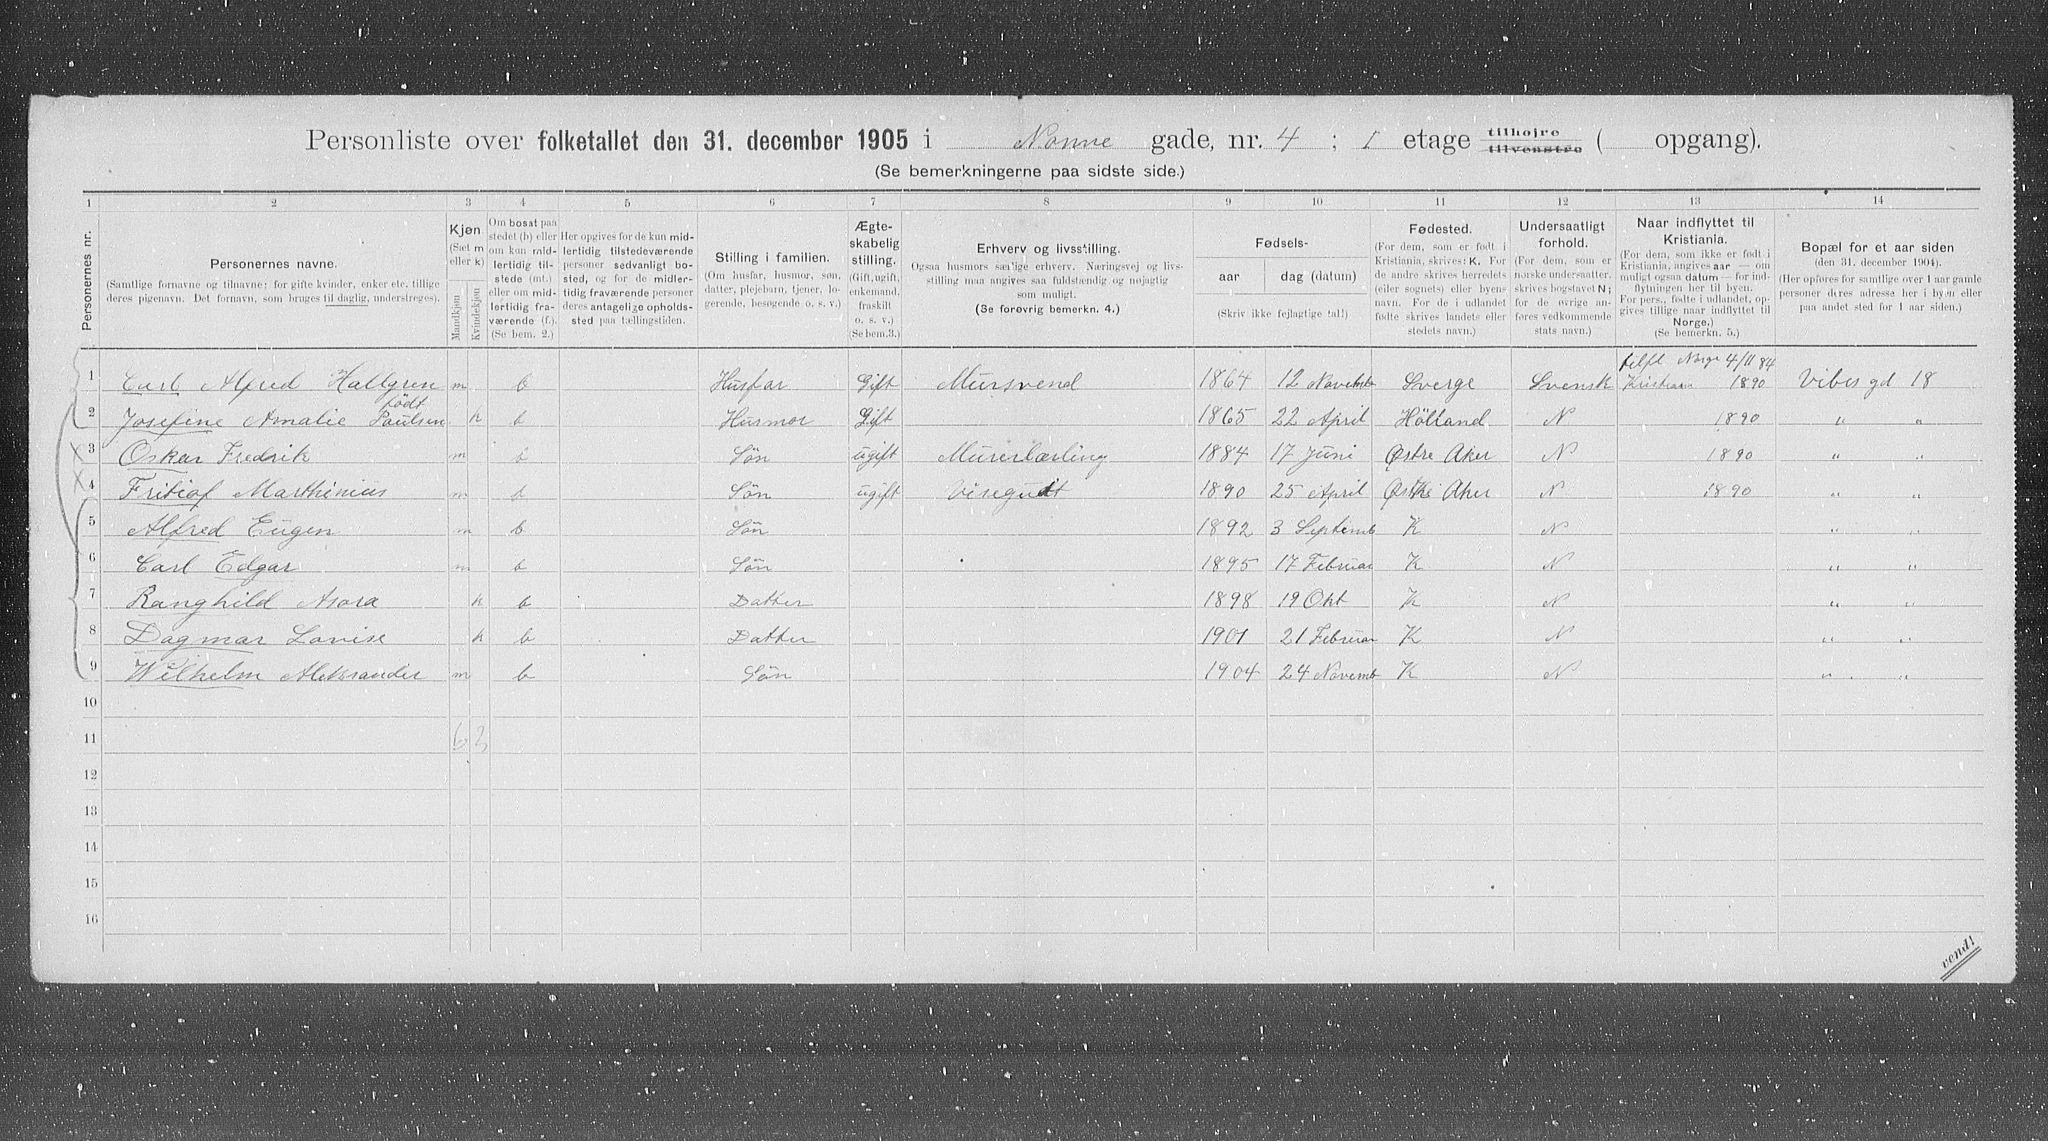 Personliste over folketallet den 31. december 1905 i Nonne gade, nr. 4 ; I etage tilhøjre tilvenstre ( opgang).
(Se bemerkningerne paa sidste side.)
1 2 3 4 5 6 7 8 9 10 11 12 13 14
Personernes nr.
Personernes navne.
(Samtlige fornavne og tilnavne; for gifte kvinder, enker etc. tillige
deres pigenavn. Det fornavn, som bruges til daglig, understreges).
Kjøn
(Sæt m
eller k)
Mandkjøn
Kvindekjøn
Om bosat paa
stedet (b) eller
om kun midlertidig
tilstede (mt.)
eller om midlertidig
fraværende (f.).
(Se bem. 2.)
Her opgives for de kun midlertidig
tilstedeværende
personer sedvanligt bosted,
og for de midlertidig
fraværende personer
deres antagelige opholdssted
paa tællingstiden.
Stilling i familien.
(Om husfar, husmor, søn,
datter, plejebarn, tjener, logerende,
besøgende o. s. v.)
Ægteskabelig
stilling.
(Gift, ugift,
enkemand,
fraskilt
o. s. v.)
(Se bem.3.)
Erhverv og livsstilling.
Ogsaa husmors særlige erhverv. Næringsvej og livsstilling
maa angives saa fuldstændig og nøjagtig
som muligt.
(Se forøvrig bemerkn. 4.)
Fødsels-
aar dag (datum)
(Skriv ikke fejlagtige tal!)
Fødested.
(For dem, som er født i
Kristiania, skrives: K. For
de andre skrives herredets
(eller sognets) eller byens
navn. For de i udlandet
fødte skrives landets eller
stedets navn.)
Undersaatligt
forhold.
(For dem, som er
norske undersaatter,
skrives bogstavet N;
for de øvrige anføres
vedkommende
stats navn.)
Naar indflyttet til
Kristiania.
(For dem, som ikke er født i
Kristiania, angives aar — om
muligt ogsaa datum — for indflytningen
her til byen.
For pers., fødte i udlandet, opgives
tillige naar indflyttet til
Norge.)
(Se bemerkn. 5.)
Bopæl for et aar siden
(den 31. december 1904).
(Her opføres for samtlige over 1 aar gamle
personer deres adresse her i byen eller
paa andet sted for 1 aar siden.)
Norge 4/11 84
1 Carl Alfred Hallgren m b Husfar Gift Mursvend 1864 12 Novemb Sverge Svensk Kristiania 1890 Vibes gd 18
født
2 Josefine Amalie Paulsen k b Husmor Gift 1865 22 April Hölland N 1890 " "
3 Oskar Fredrik m b Sön ugift Murerlærling 1884 17 Juni Østre Aker N 1890 " "
4 Fritiof Marthinius m b Sön ugift Visegutt 1890 25 April Østre Aker N 1890 " "
5 Alfred Eugen m b Sön 1892 3 Septemb K N " "
6 Carl Edgar m b Sön 1895 17 Februar K N " "
7 Ranghild Asora k b Datter 1898 19 Okt K N " "
8 Dagmar Lovise k b Datter 1901 21 Februar K N " "
9 Wilhelm Aleksander m b Sön 1904 24 Novemb K N " "
10
11 6 3
12
13
14
15
16
vend!